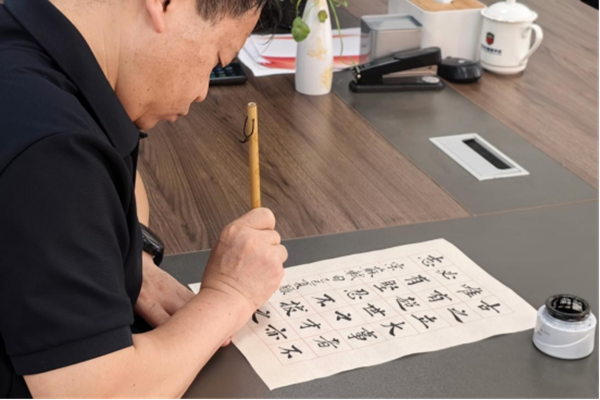 古之立大事者不
惟有超世之才亦
必有堅忍不拔之
志
宋蘇軾句